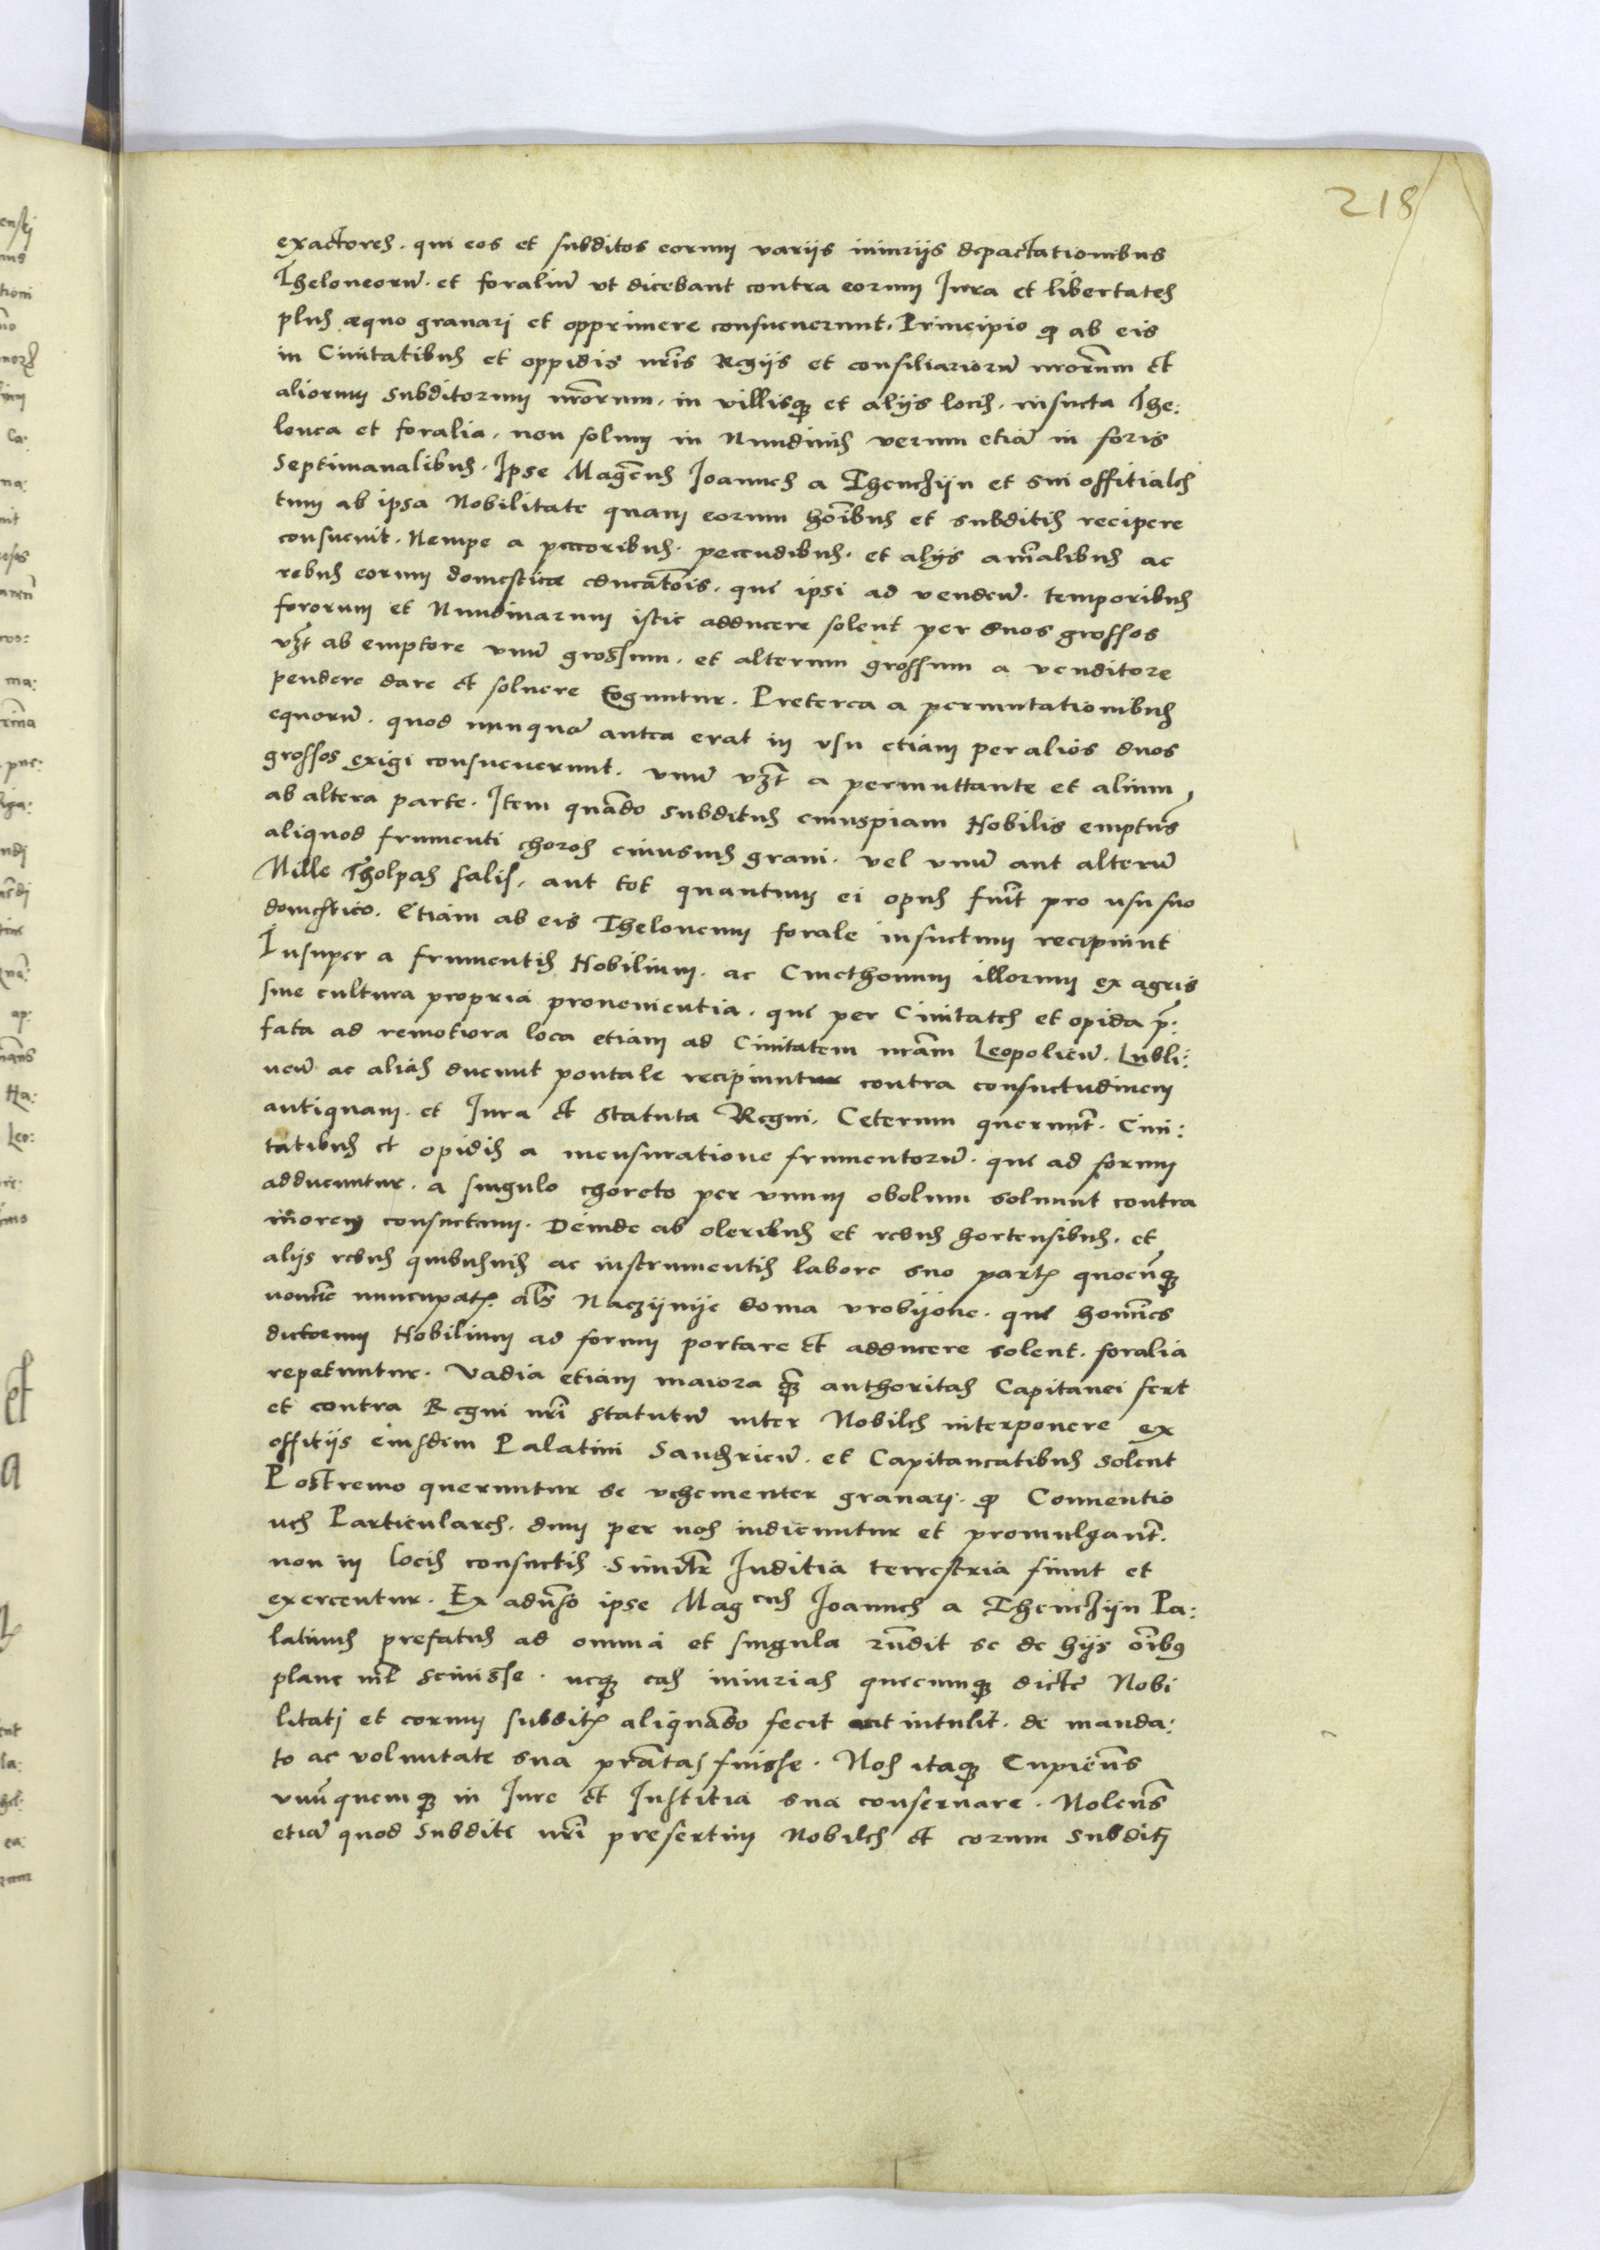 218
exactores. qui eos et subditos eorum variis iniuriis depactationibus
Theloneorũ. et foraliũ vt dicebant contra eorum Jura et libertates
plus æquo grauarj et opprimere consueuerunt. Principio q̃ ab eis
in Ciuitatibus et oppidis nr̃is Regiis et consiliariorũ nr̃orum et
aliorum subditorum nr̃orum. in villisq̃ et alijs locis. insueta The:
lonea et foralia. non solum in Nundinis verum etiã in foris
Septimanalibus. Ipse Mag̃cus Joannes a Thenczijn et sui offitiales
tum ab ipsa Nobilitate quam eorum hõibus et subditis recipere
consueuit. Nempe a pecoribus. pecudibus. et alijs añialibus ac
rebus eorum domesticæ educatõis. que ipsi ad vendeñ. temporibus
fororum et Nundinarum istic adducere solent per duos grossos
vzt ab emptore vnũ grossum. et alterum grossum a venditore
pendere dare et soluere coguntur. Preterea a permutationibus
equorũ. quod nunquã antea erat in vsu etiam per alios duos
grossos exigi consueuerunt. vnũ vzt a permuttante et alium
ab altera parte. Item quãdo subditus cuiuspiam Nobilis empturus
aliquod frumenti choros cuiusuis grani. vel vnũ aut alterũ
Mille Tholpas salis. aut tot quantum ei opus fuẽit pro usu suo
domestico. Etiam ab eis Thelonemm forale insuetum recipiunt
Insuper a frumentis Nobilium. ac Cmethonum illorum ex agris
siue cultura propria prouenientia. que per Ciuitates et opida p̃:
fata ad remotiora loca etiam ad Ciuitatem nr̃am Leopolieñ. Lubli:
neñ ac alias ducunt pontale recipiunt contra consuetudinem
antiquam. et Jura et Statuta Regni. Ceterum queruñt. Ciui:
tatibus et opidis a mensuratione frumentorũ. que ad forum
adducuntur. a singulo choreto per vnum obolum soluunt contra
morem consuetum. Deinde ab oleribus et rebus hortensibus. et
alijs rebus quibusuis ac instrumentis labore suo partis quocũq̃
nomĩe nuncupatis. al̃s Naczijnije doma vrobijone. que homĩes
dictorum Nobilium ad forum portare et adducere solent. foralia
repetuntur. Vadia etiam maiora q̃ authoritas Capitanei fert
et contra Regni nr̃i statutũ inter Nobiles interponere ex
offitijs eiusdem Palatini Sandxrieñ. et Capitaneatibus solent
Postremo queruntur se vehementer grauarj. q̃ Conuentio
nes Particulares. dum per nos indicuntur et promulgañt.
non in locis consuetis. Similr̃ Juditia terrestria fiunt et
exercentur. Ex aduẽso ipse Magcus Joannes a Thenczijn Pa:
latinus prefatus ad omnia et singula rñdit se de hijs õibus
plane nil̃ sciuisse. neq̃ eas iniurias quecumq̃ dictæ Nobi
litatj et eorum subditis aliquãdo fecit aut intulit. de manda:
to ac voluntate sua pr̃atas fuisse. Nos itaq̃ Cupieñs
vnũquemq̃ in Jure et Justitia sua conseruare. Noleñs
etiã quod Subditi nr̃i presertim Nobiles et eorum Subditj